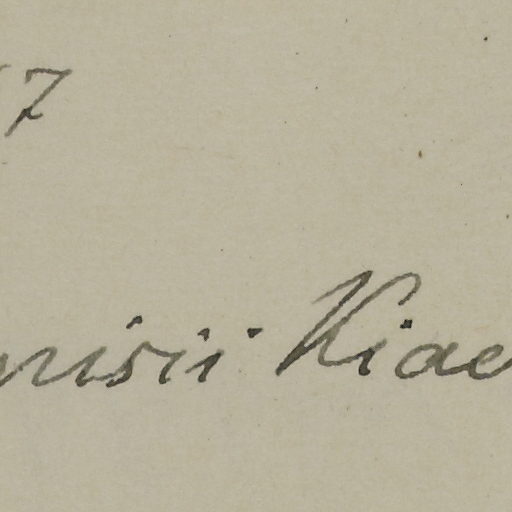 7
nisii Kiae